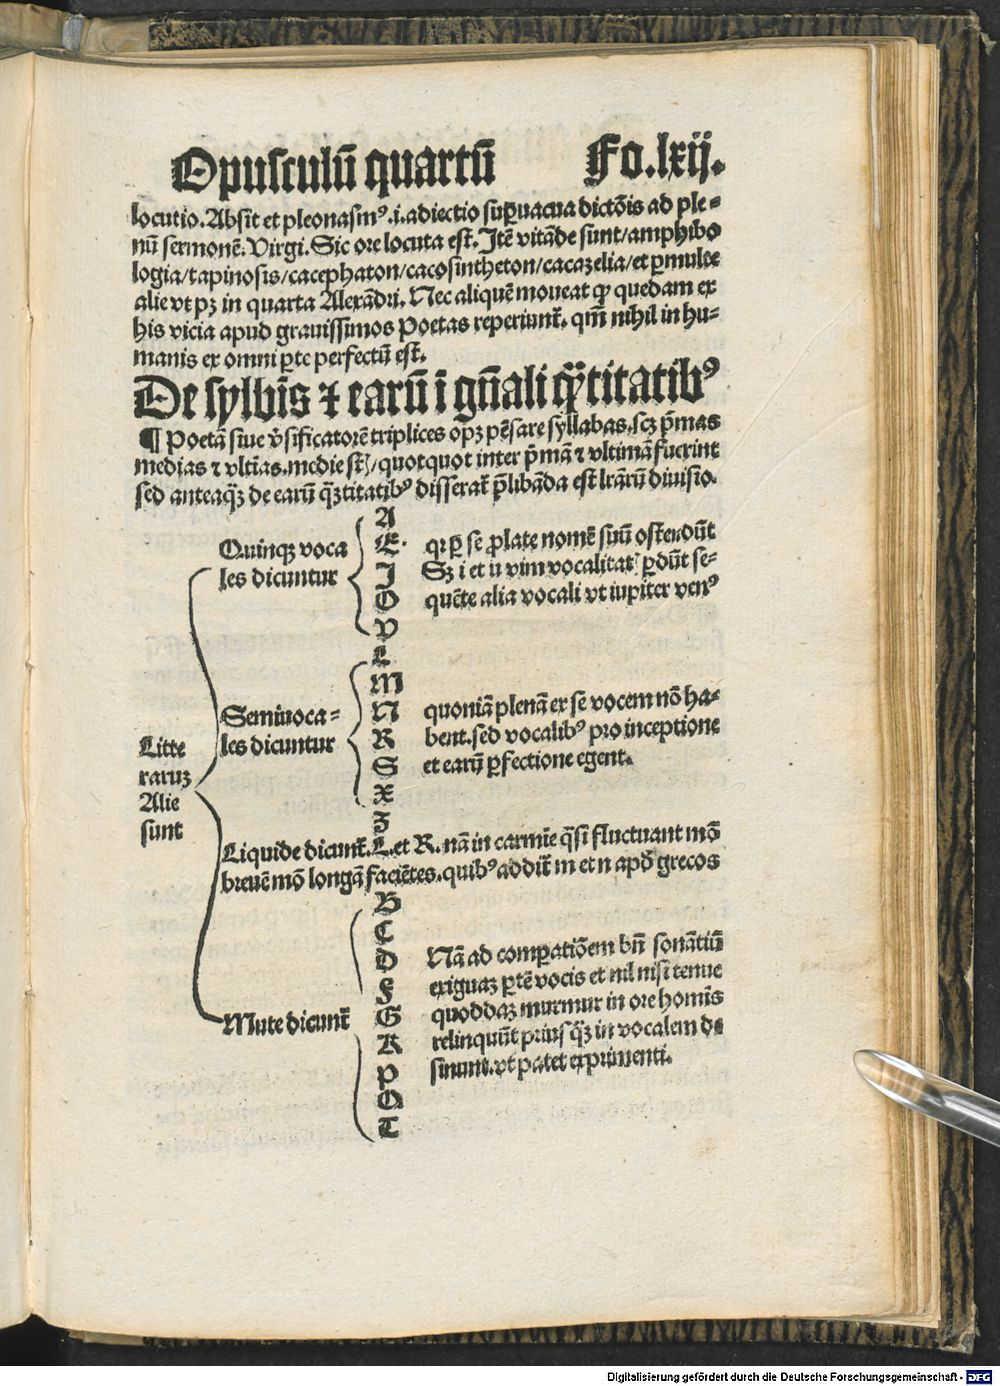 Opusculū quartū Fo.lxij.
locutio. Absit et pleonasmꝰ.i.adiectio suꝑuacua dictōis ad ple⸗
nū sermonē. Virgi. Sic ore locuta est. Itē vitāde sunt/amphibo
logia/tapinosis/cacephaton/cacosintheton/cacazelia/et ꝑmulte
alie vt pꝫ in quarta Alexādri. Nec aliquē moueat ꝙ quedam ex
his vicia apud grauissimos Poetas reperiunt̄. qm̄ nihil in hu⸗
manis ex omni ꝑte perfectū est.
De sylbis ⁊ earū ī gn̄ali q̄titatibꝰ
¶ Poetā siue v̄sificatorē triplices opꝫ pēsare syllabas.scꝫ p̄mas
medias ⁊ vltīas.medie st̄/quotquot inter p̄mā ⁊ vltimā fuerint
sed anteaq̄ꝫ de earū q̄ꝫtitatibꝰ disserat̄ p̄libāda est lr̄arū diuisio.
A
Quinqꝫ voca E. qꝛ ꝑ se ꝓlate nomē suū ostendūt
les dicuntur I Sꝫ i et u vim vocalitat ꝑdūt se⸗
O quēte alia vocali vt iupiter venꝰ
V
L
M
Semiuoca⸗ N quoniā plenā ex se vocem nō ha⸗
les dicuntur R bent.sed vocalibꝰ pro inceptione
S et earū ꝑfectione egent.
X
Z
Litte
raruꝫ
Alie
sunt
Liquide dicunt̄.L.et R.nā in carmīe q̄si fluctuant mō
breuē mō longā faciētes.quibꝰ addūt m et n apd̄ grecos
B
C
D Nā ad comꝑatiōem bn̄ sonātiū
F exiguaꝫ ꝑtē vocis et nil nisi tenue
Mute dicunt̄ G quoddaꝫ murmur in ore homīs
K relinquūt priusq̄ꝫ in vocalem de
P sinunt.vt patet exprimenti.
Q
T
Digitalisierung gefördert durch die Deutsche Forschungsgemeinschaft - DFG